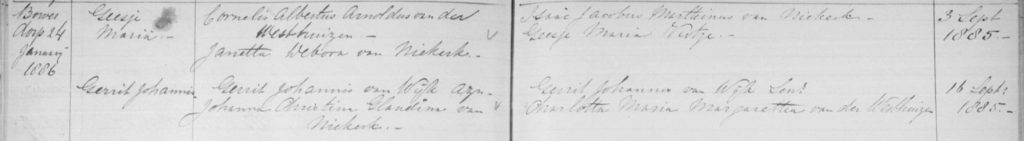 Bowes Geesje Cornelis Albertus Arnoldus van der Isaac Jacobus Marthinus van Niekerk - 3 Sept
dorp 24 Maria - Westhuizen - Geesje Maria 1885 -
January Janetta Debora van Niekerk -
1886
Gerrit Johannes Gerrit Johannis van Wijk Azn Gerrit Johannes van Wijk Senr 16 Septr
Johanna Christina Claudina van Charlotta Maria Margaretha van der Westhuizen 1885 -
Niekerk -